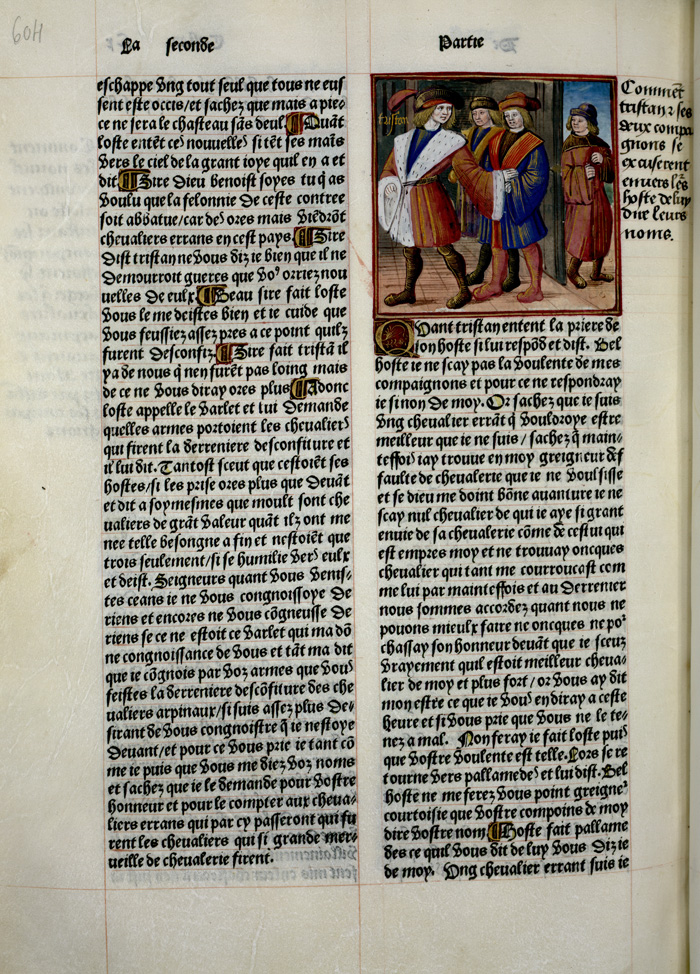 60H
La seconde
Partie
eschappe vng tout seul que tous ne eus
sent este occis/et sachez que mais a pie⸗
ce ne sera le chasteau sãs deul. Quãt
loste entẽt ces nouuelles si tẽt ses mais
vers le ciel de la grant ioye quil en a et
dit. Sire dieu benoist soyes tu q̃ as
voulu que la felonnie de ceste contree
soit abbatue/car des ores mais viẽdrõt
cheualiers errans en cest pays. Sire
dist tristan ne vous diz ie bien que il ne
demourroit gueres que voꝰ orriez nou
uelles de eulx. Beau sire fait loste
vous le me deistes bien et ie cuide que
vous feussiez assez pres a ce point quilz
furent desconfiz. Sire fait tristã il
ya de nous q̃ nen furẽt pas loing mais
de ce ne vous diray ores plus. Adonc
loste appelle le varlet et lui demande
quelles armes portoient les cheualiers
qui firent la derreniere desconfiture et
il lui dit. Tantost sceut que cestoiẽt ses
hostes/si les prise ores plus que deuãt
et dit a soymesmes que moult sont che
ualiers de grãt valeur quãt ilz ont me
nee telle besongne a fin et nestoiẽt que
trois seulement/si se humilie vers eulx
et deist. Seigneurs quant vous venis⸗
tes ceans ie ne vous congnoissoye de
riens et encores ne vous cõgneusse de
riens se ce ne estoit ce varlet qui ma dõ
ne congnoissance de vous et tãt ma dit
que ie cõgnois par voz armes que vous
feistes la derreniere descõfiture des che
ualiers arpinaux/si suis assez plus de⸗
sirant de vous congnoistre q̃ ie nestoye
deuant/et pour ce vous prie ie tant cõ
me ie puis que vous me diez voz noms
et sachez que ie le demande pour vostre
honneur et pour le compter aux cheua⸗
liers errans qui par cy passeront qui fu
rent les cheualiers qui si grande mer⸗
ueille de cheualerie firent.
tristan
Commẽt
tristan ⁊ ses
deux compa
gnons se
excuserent
enuers les
hoste de luy
dire leurs
noms.
Quant tristan entent la priere de
son hoste si lui respõd et dist. Bel
hoste ie ne scay pas la voulente de mes
compaignons et pour ce ne respondray
ie si non de moy. Or sachez que ie suis
vng cheualier errãt q̃ vouldroye estre
meilleur que ie ne suis/ sachez q̃ main⸗
teffois iay trouue en moy greigneur def
faulte de cheualerie que ie ne voulsisse
et se dieu me doint bõne auanture ie ne
scay nul cheualier de qui ie aye si grant
enuie de sa cheualerie cõme de cestui qui
est empres moy et ne trouuay oncques
cheualier qui tant me courroucast com
me lui par mainteffois et au derrenier
nous sommes accordez quant nous ne
pouons mieulx faire ne oncques ne poꝰ
chassay son honneur deuãt que ie sceuz
vrayement quil estoit meilleur cheua⸗
lier de moy et plus fort/or vous ay dit
mon estre ce que ie vous en diray a ceste
heure et si vous prie que vous ne le te⸗
nez a mal. Non feray ie fait loste puis
que vostre voulente est telle. Lors se re
tourne vers pallamedes et lui dist. Bel
hoste ne me ferez vous point greigneꝰ
courtoisie que vostre compoins de moy
dire vostre nom. Hoste fait pallame
des ce quil vous dit de luy vous diz ie
de moy. vng cheualier errant suis ie